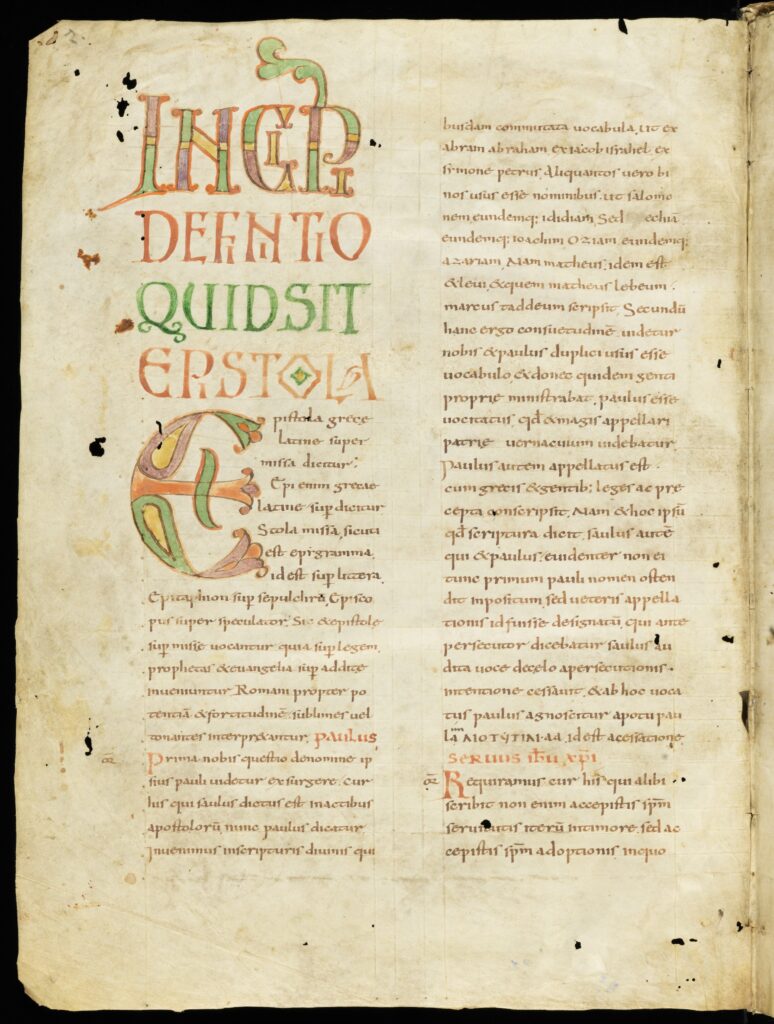 INCIPI
DEFINITIO
QUIDSIT
EPISTOLA
Epistola grece
latine super
missa dicitur.
Epi enim grecae
latine sup dicitur
Stola missa, sicuti
est epigramma,
id est sup littera.
Epitaphion sup sepulchrū, Episco
pus super speculator, Sic &epistole
sup misse vocantur quia sup legem
prophetas &euangelia sup addite
inueniuntur, Romani propter po
tentiā &fortitudinē, sublimes uel
tonantes interpr&antur, PAULUS,
Prima nobis questio denomine ip
sius pauli uidetur exsurgere. cur
his qui saulus dictus est inactibus
apostolorū nunc paulus dicatur
Inuenimus inscripturis diuinis qui
busdam commutata uocabula, ut ex
abram abraham exiacob israhel ex
simone petrus, Aliquantos uero bi
nos usus esse nominibus, ut salomo
nem eundemq; ididiam, Sed echiā
eundemq; ioachim Oziam, eundemq;
azariam, Nam matheus, idem est
&leui, &quem matheus lebeum
marcus taddeum scripsit, Secundū
hanc ergo consuetudinē, uidetur
nobis &paulus duplici usus esse
uocabulo, &donec quidem genti
proprie ministrabat, paulus esse
uocitatus qđ &magis appellari
patrie uernaculum uidebatur,
Paulus autem appellatus est
cum grecis &gentib; leges ac pre
cepta conscripsit, Nam &hoc ipsū
qđ scriptura dicit, saulus autē
qui &paulus, euidenter non ei
tunc primum pauli nomen osten
dit inpositum, sed ueteris appella
tionis id fuisse designatū, qui ante
persecutor dicebatur saulus au
dita uoce decelo apersecutionis
intentione cessauit, &ab hoc uoca
tus paulus agnoscitur apotu pau
la, id est acessatione
SERUUS ihū xp̄i
Requiramus cur his qui alibi
scribit non enim accepistis spm̄
seruitutis iterū intimore, sed ac
cepistis spm̄ adoptionis inquo